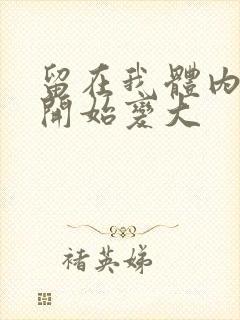 留在我體内
開始變大
褚英娣